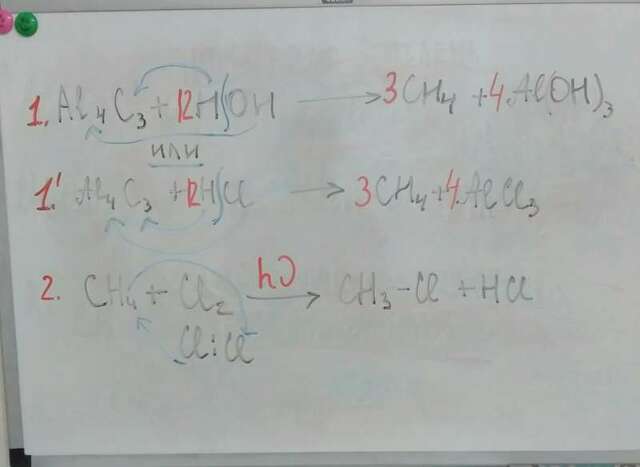 1. Al₄C₃ + 12H⌠OH → 3CH₄ + 4Al(OH)₃
или
1! Al₄C₃ + 12H⌠Cl → 3CH₄ + 4AlCl₃
2. CH₄ + Cl₂ hν → CH₃-Cl + HCl
Cl:Cl